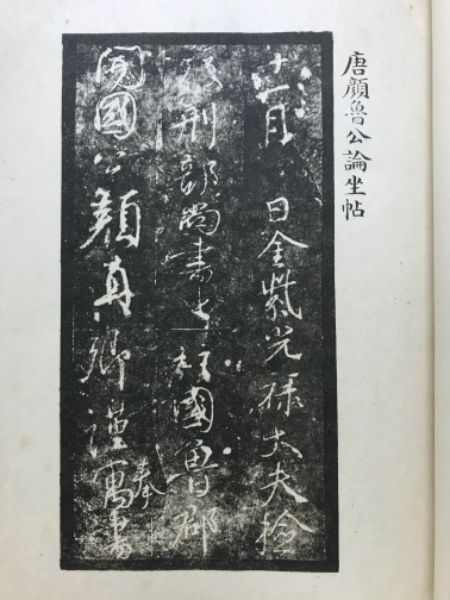 唐顏魯公論坐帖
十一月日金紫光祿大夫檢
校刑部尚書上柱國魯郡
開國公顏真卿謹奉寓書